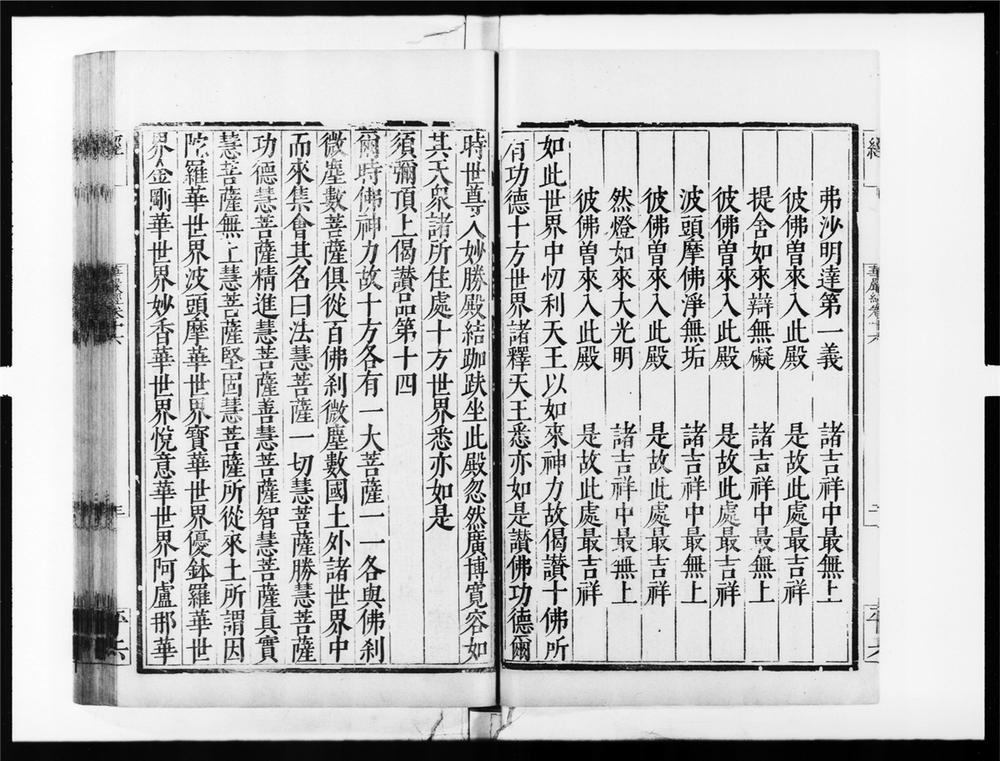 弗沙明達第一義　諸吉祥中最無上
彼佛曽來入此殿　是故此處最吉祥
提舍如來辯無礙　諸吉祥中最無上
彼佛曽來入此殿　是故此處最吉祥
波頭摩佛淨無垢　諸吉祥中最無上
彼佛曽來入此殿　是故此處最吉祥
然燈如來大光明　諸吉祥中最無上
彼佛曽來入此殿　是故此處最吉祥
如此世界中忉利天王以如來神力故偈讃十佛所
有功德十方世界諸釋天王悉亦如是讃佛功德爾
時世尊入妙勝殿結跏趺坐此殿忽然廣博寬容如
其天衆諸所住處十方世界悉亦如是
須彌頂上偈讃品第十四
爾時佛神力故十方各有一大菩薩一一各與佛刹
微塵數菩薩俱從百佛刹微塵數國土外諸世界中
而來集會其名曰法慧菩薩一切慧菩薩勝慧菩薩
功德慧菩薩精進慧菩薩善慧菩薩智慧菩薩真實
慧菩薩無上慧菩薩堅固慧菩薩所從來土所謂因
陀羅華世界波頭摩華世界寶華世界優鉢羅華世
界金剛華世界妙香華世界悅意華世界阿盧那華